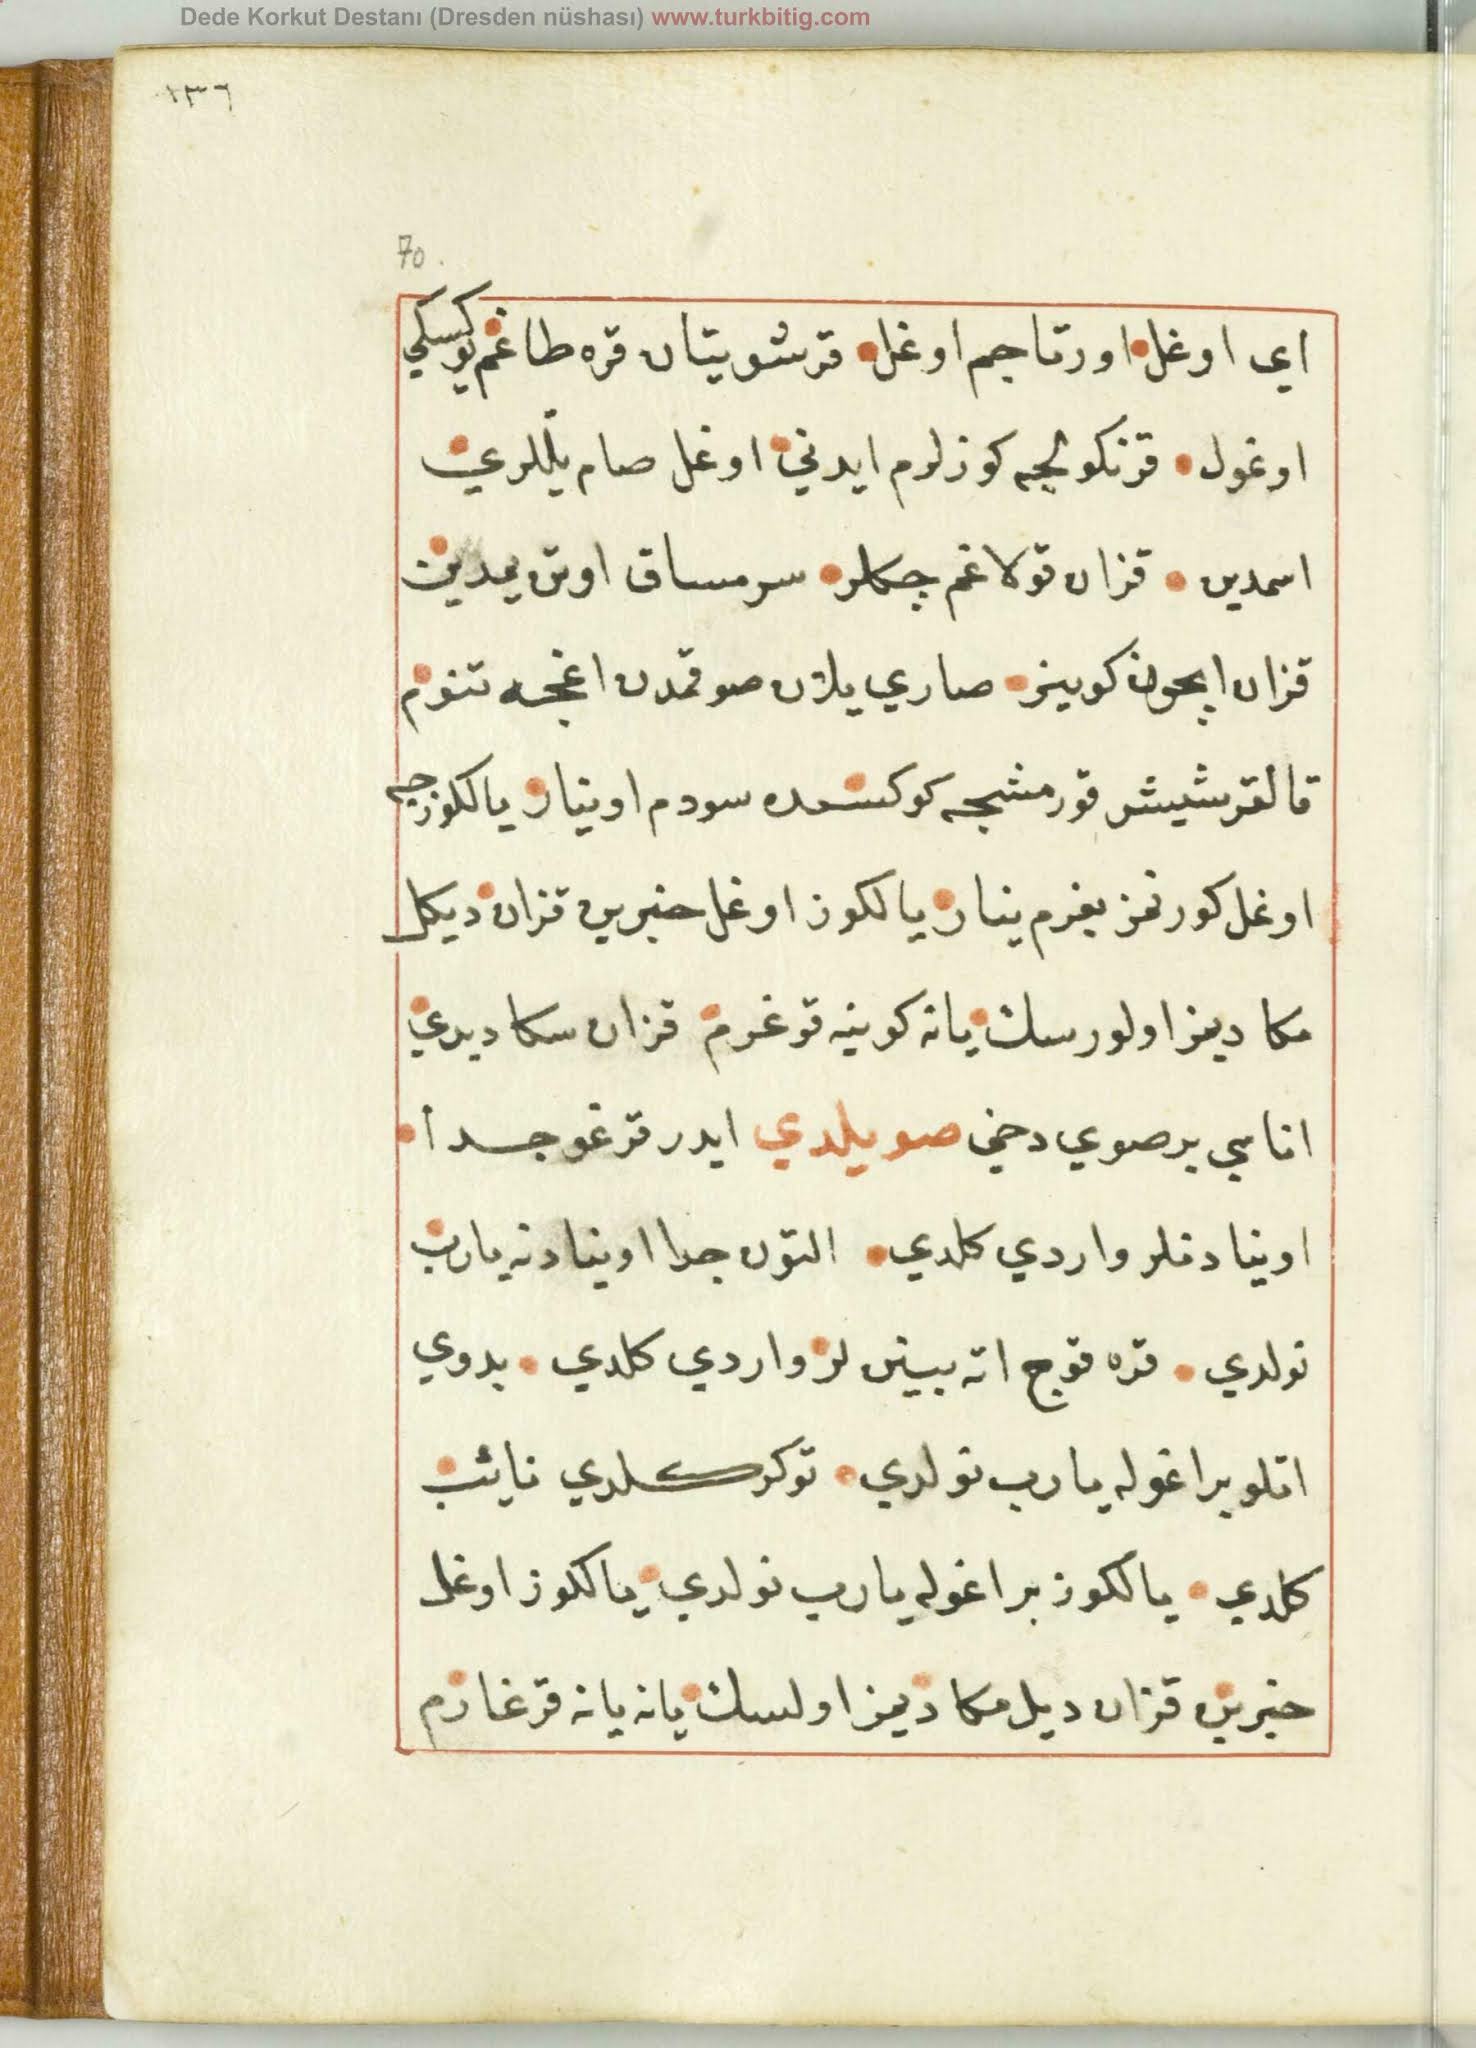 Dede Korkut Destanı (Dresden nüshası) www.turkbitig.com
١٣٦
70.
اي اوغل اورتاجم اوغل قرشو يتان قره طاغم يوكسكي
اوغول قرنكولجه كوزلرم ايدني اوغل صام يللري
اسمدين قزان قولاغم چكلر سرمساق اوتن يمدين
قزان ايچوم كوينر صاري يلان صوقمدن اغجه تنوم
قالقر شيشر قورمشجه كوكسمده سودم اوينار يالكوزجه
اوغل كورنمز بغرم ينار يالكوز اوغل خبرين قزان ديكل
مكا ديمز اولورسك يانه كوينه قوغرم قزان سكا ديدي
اناسي بر صوي دخي صويلدي ايدر قرغو جدا
اوينادنلر واردي كلدي التون جدا اوينادنه يا رب
نولدي قره قوج اته بينن لر واردي كلدي بدوي
اتلو بر اغوله يا رب نولدي نوكر كلدي نايب
كلدي يالكوز بر اغوله يا رب نولدي يالكوز اوغل
خبرين قزان ديل مكا ديمز اولسك يانه يانه قرغارم